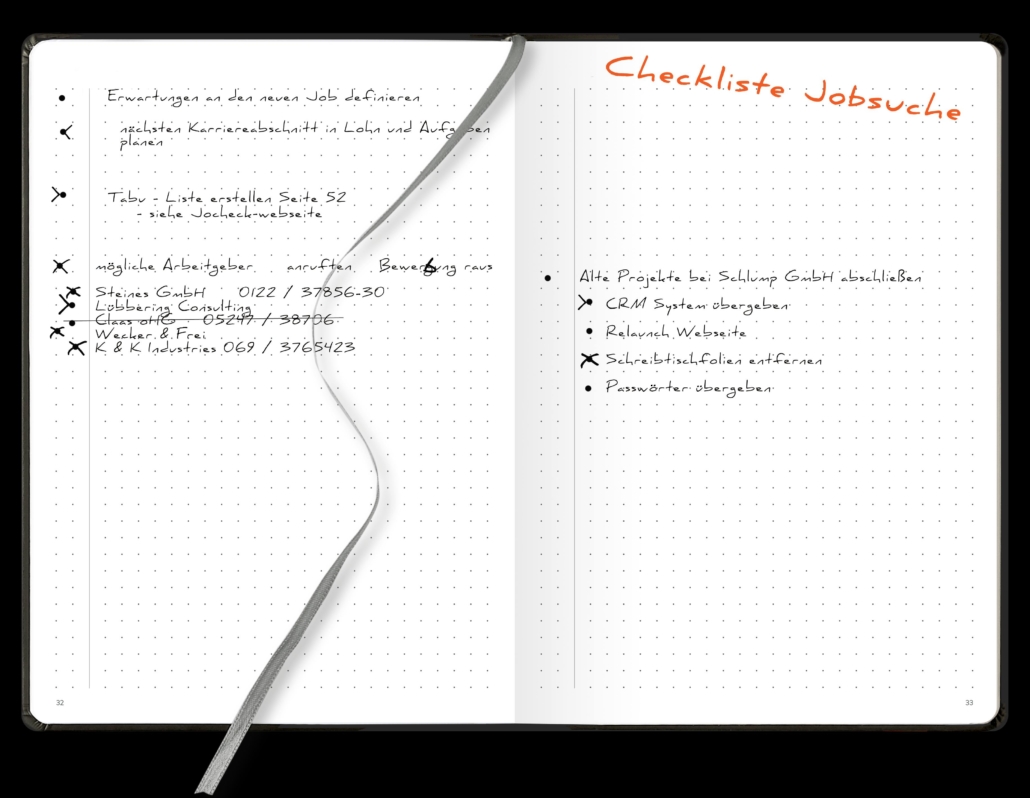 Erwartungen an den neuen Job definieren
nächsten Karriereabschnitt in Lohn und Aufgaben
planen
Tabu - Liste erstellen Seite 52
- siehe Jocheck-webseite
mögliche Arbeitgeber anruften Bewerbung raus
Steines GmbH 0122 / 37856-30
Lübbering Consulting
Claas oHG 05247 / 38706
Wecker & Frei
K & K Industries 069 / 3765423
32
Checkliste Jobsuche
Alte Projekte bei Schlump GmbH abschließen
CRM System übergeben
Relaunch Webseite
Schreibtischfolien entfernen
Passwörter übergeben
33